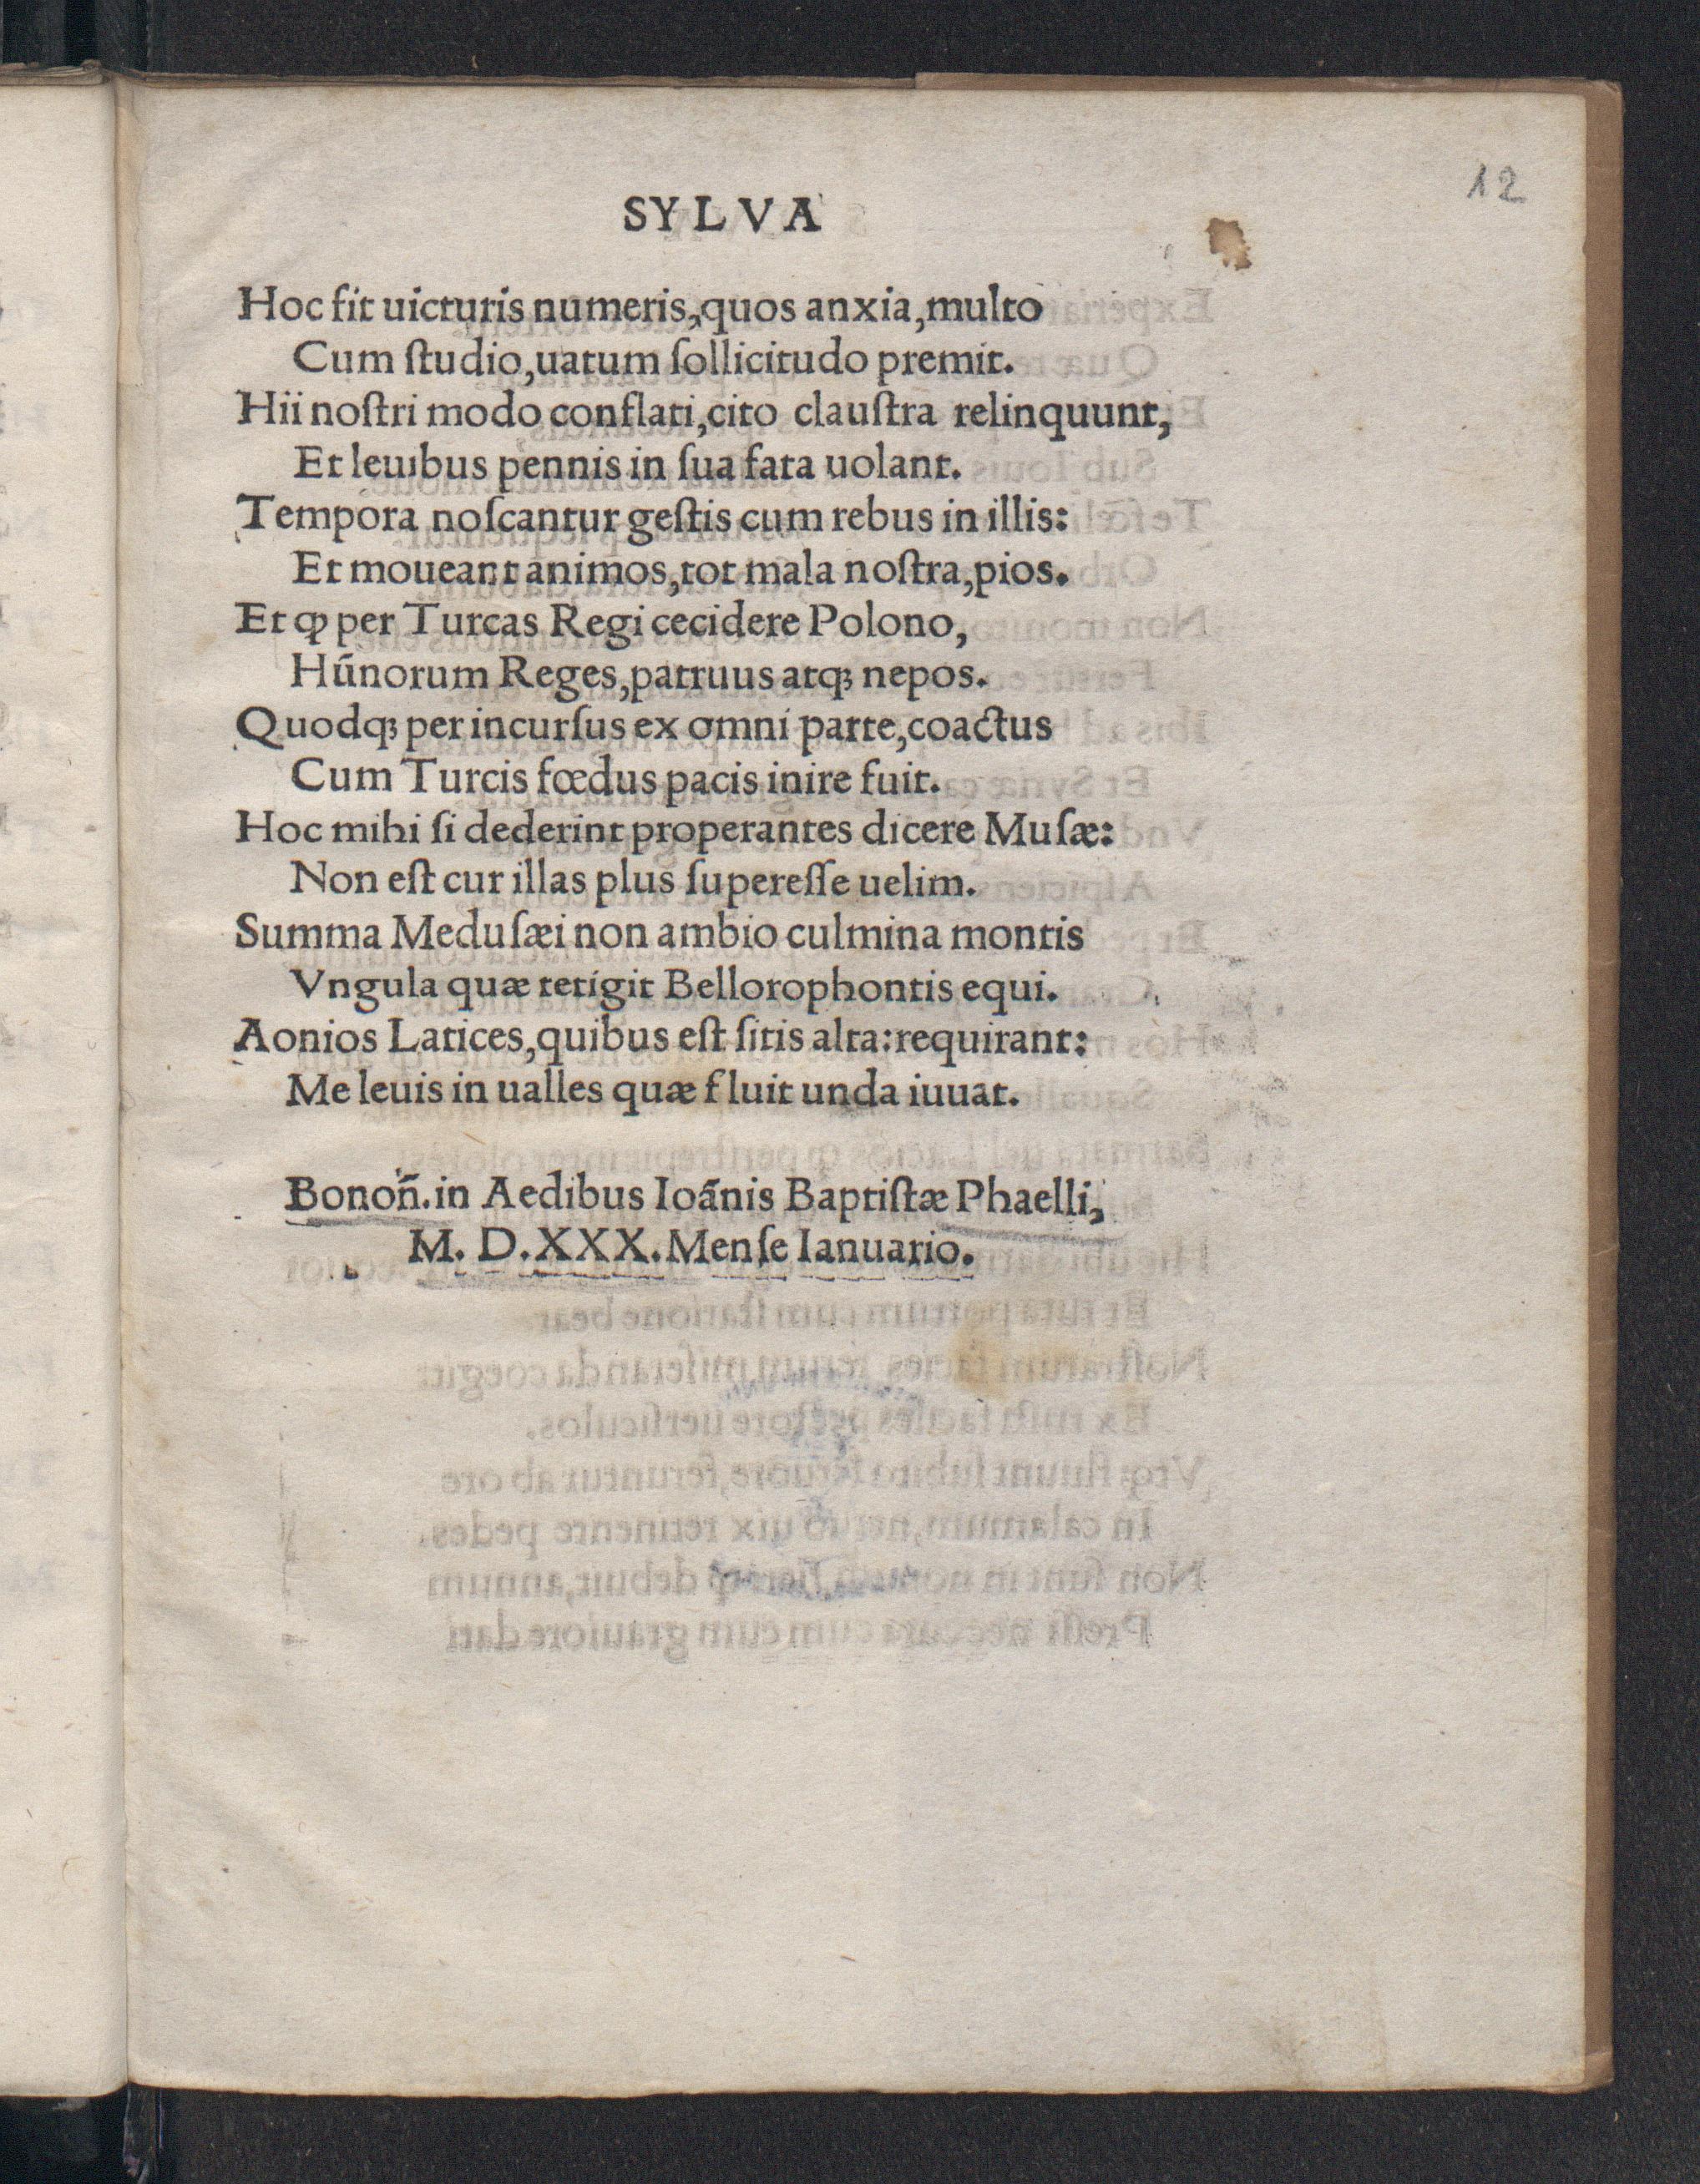 12
SYLVA
Hoc fit uicturis numeris,quos anxia,multo
Cum ſtudio,uatum ſollicitudo premit.
Hii noſtri modo conflati,cito clauſtra relinquunt,
Et leuibus pennis in ſua fata uolant.
Tempora noſcantur geſtis cum rebus in illis:
Et moueant animos,tot mala noſtra,pios.
Et ꝙ per Turcas Regi cecidere Polono,
Hūnorum Reges,patruus atqꝫ nepos.
Quodqꝫ per incurſus ex omni parte,coactus
Cum Turcis fœdus pacis inire fuit.
Hoc mihi ſi dederint properantes dicere Muſæ:
Non eſt cur illas plus ſupereſſe uelim.
Summa Meduſæi non ambio culmina montis
Vngula quæ tetigit Bellorophontis equi.
Aonios Latices,quibus eſt ſitis alta:requirant:
Me leuis in ualles quæ fluit unda iuuat.
Bonon̄.in Aedibus Ioānis Baptiſtæ Phaelli,
M. D.XXX.Menſe Ianuario.